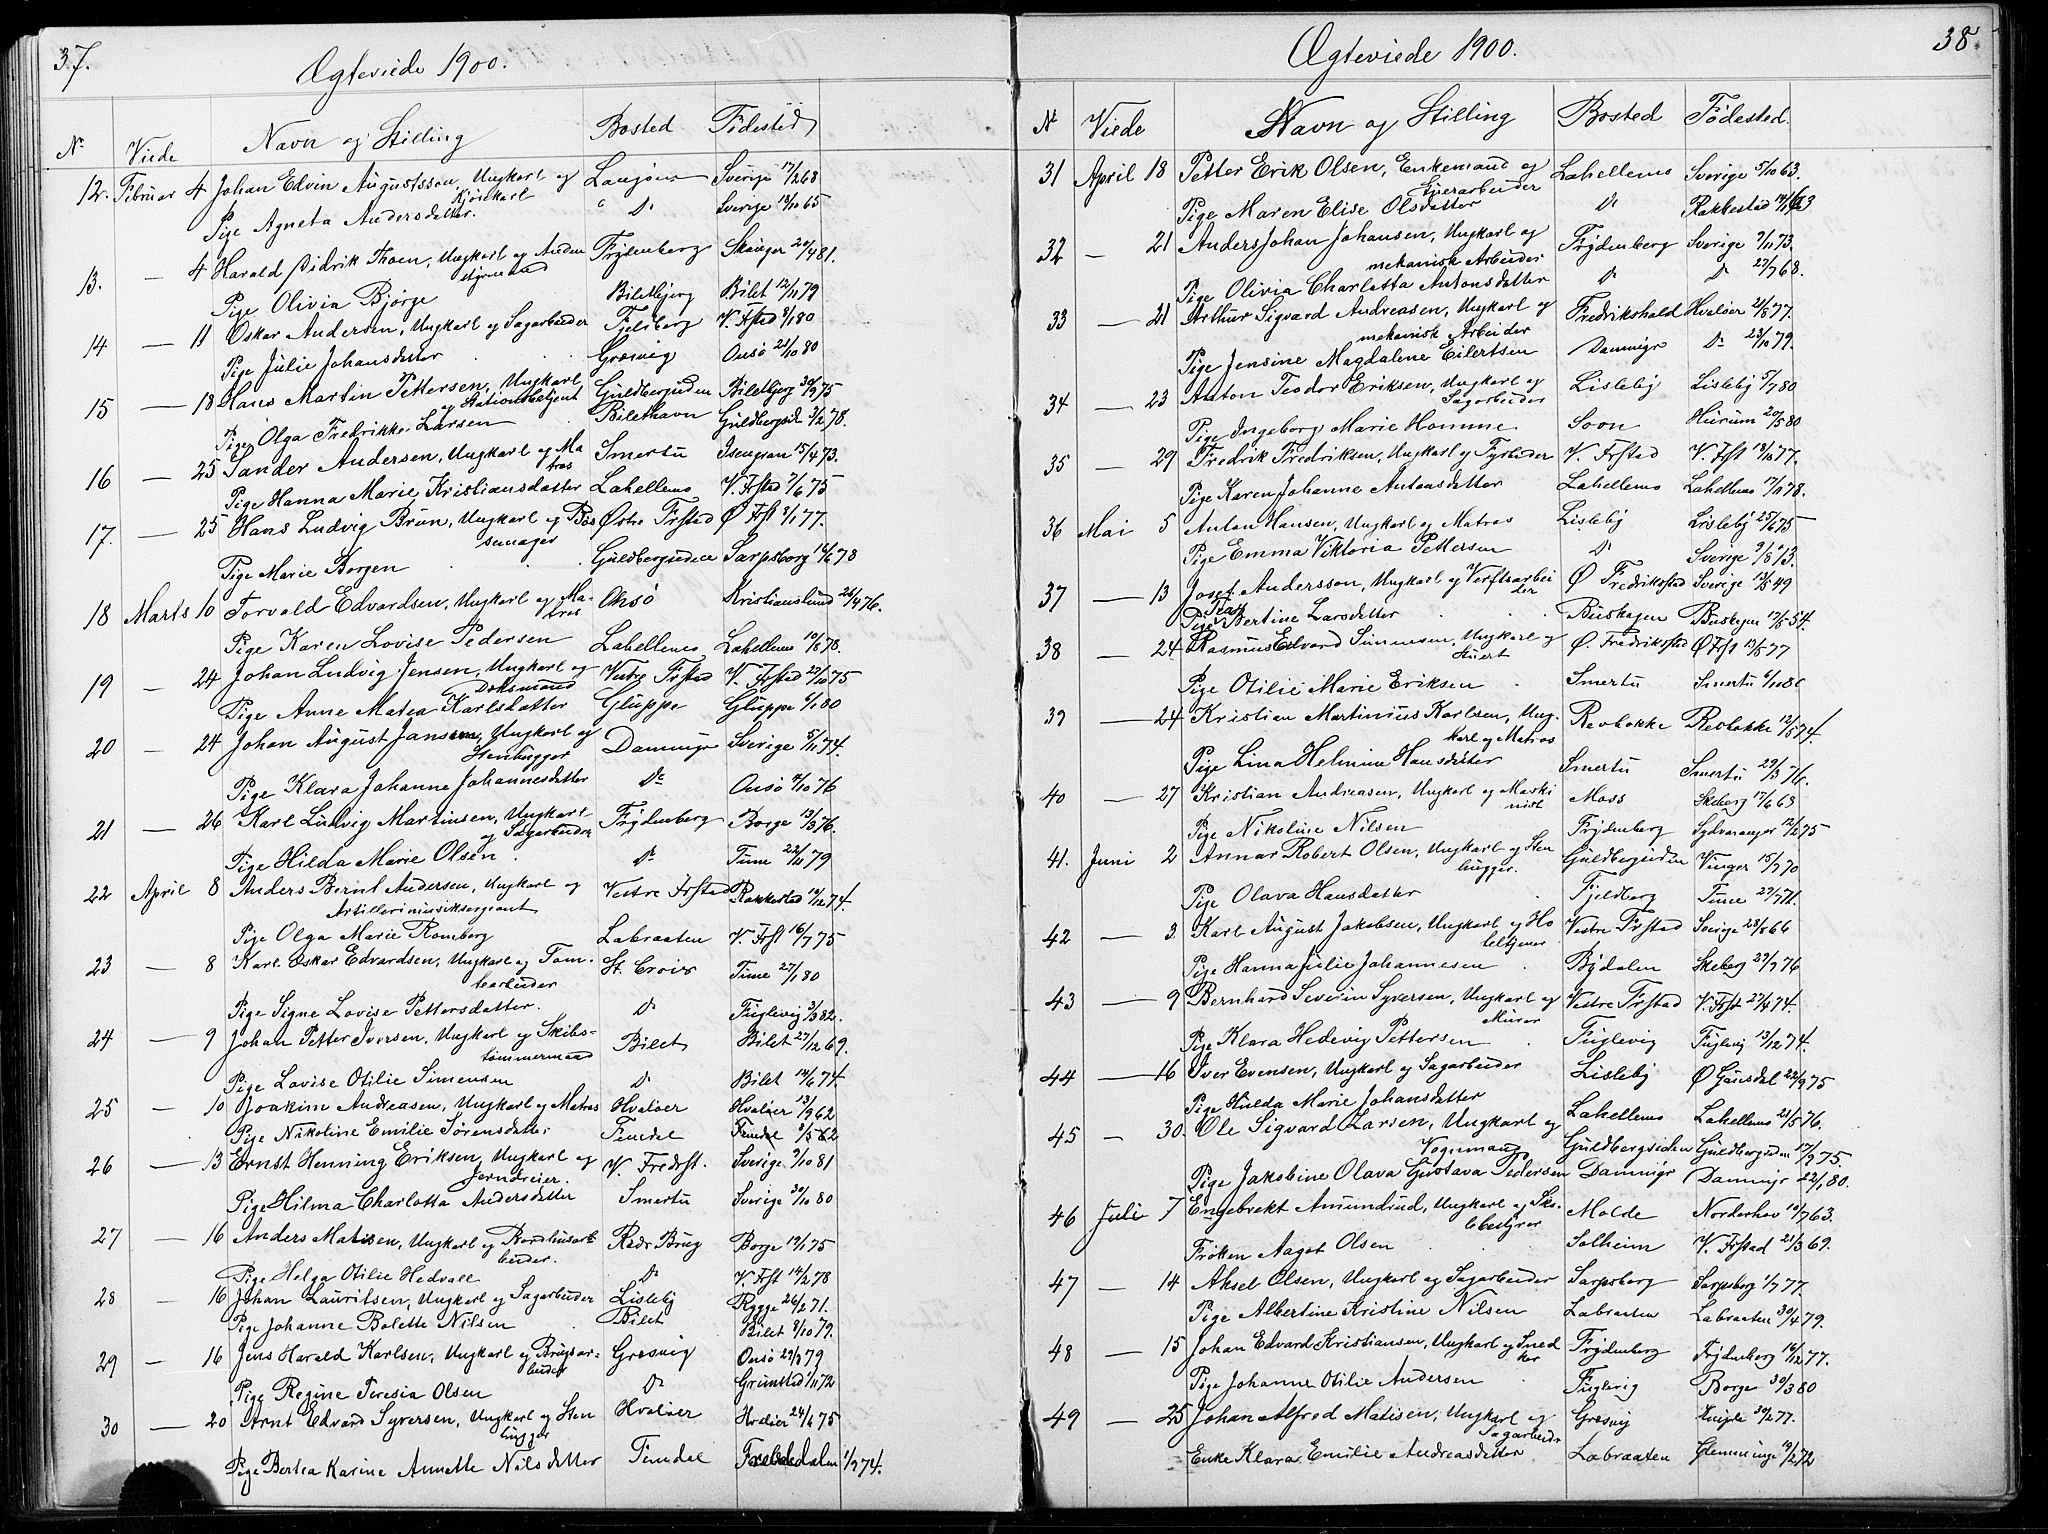 37.
Ægteviede 1900.
Nr Viede Navn og Stilling Bosted Fødested
12. Februar 4 Johan Edvin Augustsson, Ungkarl og Kjørekarl Langøen Sverige 17/2 68
Pige Agneta Andersdatter. " Do Sverige 13/10 65
13. — 4 Harald Didrik Thoen, Ungkarl og Anden Styrmand Frydenberg Skanger 20/4 81.
Pige Olivia Bjørge Biletbjerg Bilet 12/11 79
14 — 11 Oskar Andersen, Ungkarl og Sagarbeider Fjelberg V. Frstad 9/1 80
Pige Julie Johansdatter Græsvig Onsø 21/10 80
15 — 18 Hans Martin Pettersen, Ungkarl og Stationsbetjent Guldbergsiden Biletbjerg 30/9 75
Pige Olga Fredrikke Larsen Bilethavn Guldbergsd 3/2 78.
16 — 25 Sander Andersen, Ungkarl og Matros Smertu Isengran 15/4 73.
Pige Hanna Marie Kristiansdatter Lahellemo V. Frstad 7/6 75
17. — 25 Hans Ludvig Brun, Ungkarl og Bøssemager Østre Frstad Ø Frst 8/1 77.
Pige Marie Borgen Guldbergsiden Sarpsborg 16/6 78
18 Marts 10 Torvald Edvardsen, Ungkarl og Matros Onsø Kristiansund 26/4 76.
Pige Karen Lovise Pedersen Lahellemo Lahellemo 10/8 78.
19 — 24 Johan Ludvig Jensen, Ungkarl og Doksmand Vestre Frstad V. Frstad 23/10 75
Pige Anne Matea Karlsdatter Gluppe Gluppe 6/1 80
20 — 24 Johan August Jansen, Ungkarl og Stenhugger Dammyr Sverige 5/11 74.
Pige Klara Johanne Johannesdatter Do Onsø 4/10 76
21 — 26 Karl Ludvig Martinsen, Ungkarl og Sagarbeider Frydenberg Borge 13/3 76.
Pige Hilda Marie Olsen Do Tune 22/11 79
22 April 8 Anders Bernt Andersen, Ungkarl og Artillerimusiksergeant Vestre Frstad Rakkestad 19/12 74.
Pige Olga Marie Romberg Labraaten V. Frst 16/7 75
23 — 8 Karl Oskar Edvardsen, Ungkarl og Tomtearbeider St. Croix Tune 27/1 80
Pige Signe Lovise Pettersdatter. Do Fuglevig 3/3 82.
24 — 9 Johan Petter Iversen, Ungkarl og Skibstømmermand Bilet Bilet 27/12 69.
Pige Lovise Otilie Simensen Do Bilet 14/6 74.
25 — 10 Joakim Andreasen, Ungkarl og Matros Hvaløer Hvaløer 13/9 62
Pige Nikoline Emilie Sørensdatter Femdal Femdal 8/5 62
26 — 13 Ernst Henning Eriksen, Ungkarl og Jerndreier. V. Fredrst. Sverige 9/10 81
Pige Hilma Charlotta Andersdatter Smertu Sverige 30/10 80
27 — 16 Anders Matisen, Ungkarl og Bordhusarbeider. Rødr Brug Borge 19/1 75
Pige Helga Otilie Hedvall Do V. Frst 14/2 78
28 — 16 Johan Lauritsen, Ungkarl og Sagarbeider Lisleby Rygge 26/2 71.
Pige Johanne Bolette Nilsen Bilet Bilet 8/10 79.
29 — 16 Jens Harald Karlsen, Ungkarl og Brugsarbeider Gresvig Onsø 29/3 79
Pige Regine Teresia Olsen Do Grimstad 1/11 72
30 — 20 Arnt Edvard Syversen, Ungkarl og Stenhugger Hvaløer Hvaløer 24/6 75
Pige Bertea Karine Annette Nilsdatter Femdal 1/7 74.
38.
Ægteviede 1900.
Nr Viede Navn og Stilling Bosted Fødested.
31 April 18 Petter Erik Olsen, Enkemand og Eierarbeider Lahellemo Sverige 5/10 63.
Pige Maren Elise Olsdatter Do Rakkestad
32 — 21 Anders Johan Johansen, Ungkarl og mekanisk Arbeider Frydenberg Sverige 9/11 73.
Pige Olivia Charlotta Antonsdatter Do Do 27/7 68.
33 — 21 Arthur Sigvard Andreasen, Ungkarl og mekanisk Arbeider Fredrikshald Hvaløer 21/8 77.
Pige Jensine Magdalene Eilertsen Dammyr Do 23/10 79.
34 — 23 Anton Teodor Eriksen, Ungkarl og Sagarbeider Lisleby Lisleby 5/7 80
Pige Ingeborg Marie Homme Soon Hurum 20/5 80
35 — 29 Fredrik Fredriksen, Ungkarl og Fyrbøder V. Frstad V. Frst 13/10 77.
Pige Karen Johanne Antonsdatter Lahellemo Lahellemo 17/11 78.
36 Mai 5 Anton Hansen, Ungkarl og Matros Lisleby Lisleby 25/6 75
Pige Emma Viktoria Pettersen Do Sverige 9/8 73.
37 — 13 Josef Andersson, Ungkarl og Verftsarbeider Ø Fredrikstad Sverige 13/8 49
Pige Bertine Larsdatter Buskogen Buskogen 17/8 54.
38 — 24 Rasmus Edvard Simensen, Ungkarl og Stuert Ø. Fredrikstad Ø Frst 13/8 77
Pige Otilie Marie Eriksen Smertu Smertu 6/10 80
39 — 24 Kristian Martinius Karlsen, Ungkarl og Matros Revbakke Revbakke 12/8 74.
Pige Lina Helmine Hansdatter Smertu Smertu 29/3 76.
40 — 27 Kristian Andreasen, Ungkarl og Maskinist Moss Skeberg 17/6 63
Pige Nikoline Nilsen Frydenberg Sydvaranger 12/2 75
41. Juni 2 Annar Robert Olsen, Ungkarl og Stenhugger. Guldbergsiden Vinger 18/7 70
Pige Olava Hansdatter Fjeldberg Tune 27/7 71.
42 — 3 Karl August Jakobsen, Ungkarl og Hotelttjener Vestre Frstad Sverige 28/8 66
Pige Hanna Julie Johannesen Bydalen Skeberg 29/7 76
43 — 9 Bernhard Severin Syversen, Ungkarl og Murer Vestre Frstad V. Frst 27/4 74.
Pige Klara Hedevig Pettersen Fuglevig Fuglevig 13/12 74.
44 — 16 Iver Evensen, Ungkarl og Sagarbeider Lisleby Ø Gausdal 22/9 75
Pige Hulda Marie Johansdatter Lahellemo Lahellemo 21/5 76.
45 — 30. Ole Sigvard Larsen, Ungkarl og Vognmand Guldbergsiden Guldbergsiden 17/9 75.
Pige Jakobine Olava Gustava Pedersen Dammyr Dammyr 22/1 80.
46 Juli 7 Engebrekt Amundrud, Ungkarl og Skolebestyrer Molde Norderhov 19/7 63.
Frøken Aagot Olsen Solheim V. Frstad 21/3 69.
47 — 14 Aksel Olsen, Ungkarl og Sagarbeider Sarpsborg Sarpsborg 1/7 77.
Pige Albertine Kristine Nilsen Labraaten Labraaten 30/4 79.
48 — 15 Johan Edvard Kristiansen, Ungkarl og Snedker Frydenberg Frydenberg 16/12 77.
Pige Johanne Otilie Andersen Fuglevig Borge 30/3 80
49 — 25 Johan Alfred Matisen, Ungkarl og Sagarbeider Gresvig 30/2 77.
Enke Klara Emilie Andreasdatter Labraaten Glemminge 19/2 72